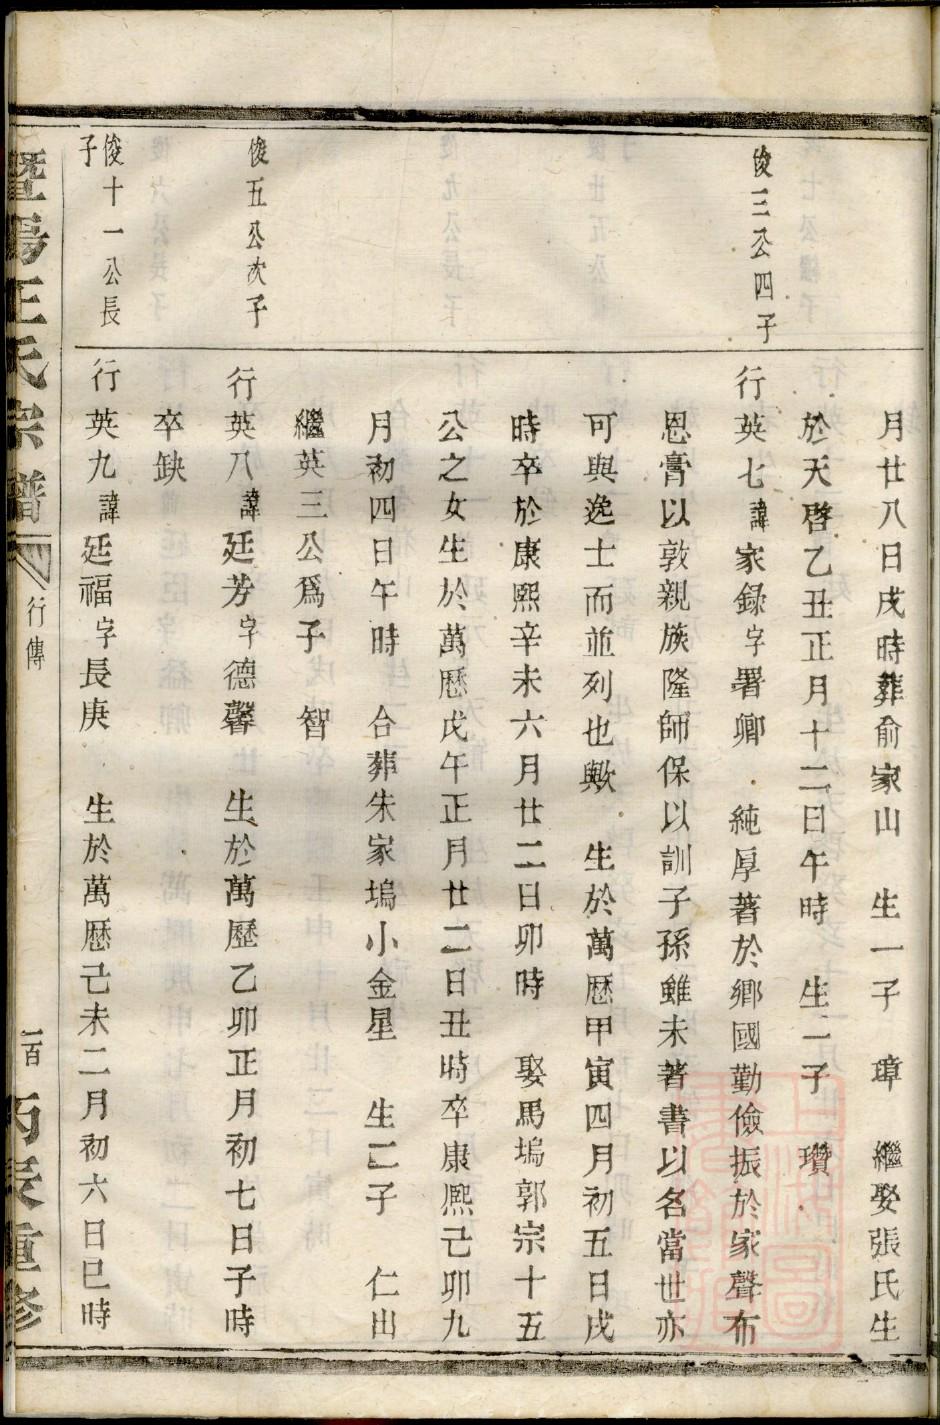 月廿八日戌時葬俞家山　生一子　璋　繼娶張氏生
於天啓乙丑正月十二日午時　生二子　瓚
俊三公四子
行英七諱家録字署卿　純厚著於鄉國勤儉振於家聲布
恩膏以敦親族隆師保以訓子孫雖未著書以名當世亦
可與逸士而並列也歟　生於萬歷甲寅四月初五日戌
時卒於康熙辛未六月廿二日卯時　娶馬塢郭宗十五
公之女生於萬歷戊午正月廿二日丑時卒康熙己卯九
月初四日午時　合葬朱家塢小金星　生二子　仁出
繼英三公爲子　智
俊五公次子
行英八諱廷芳字德馨　生於萬歷乙卯正月初七日子時
卒缺
俊十一公長子
行英九諱廷福字長庚　生於萬歷己未二月初六日巳時
暨陽王氏宗譜　行傳　一百　丙辰重修